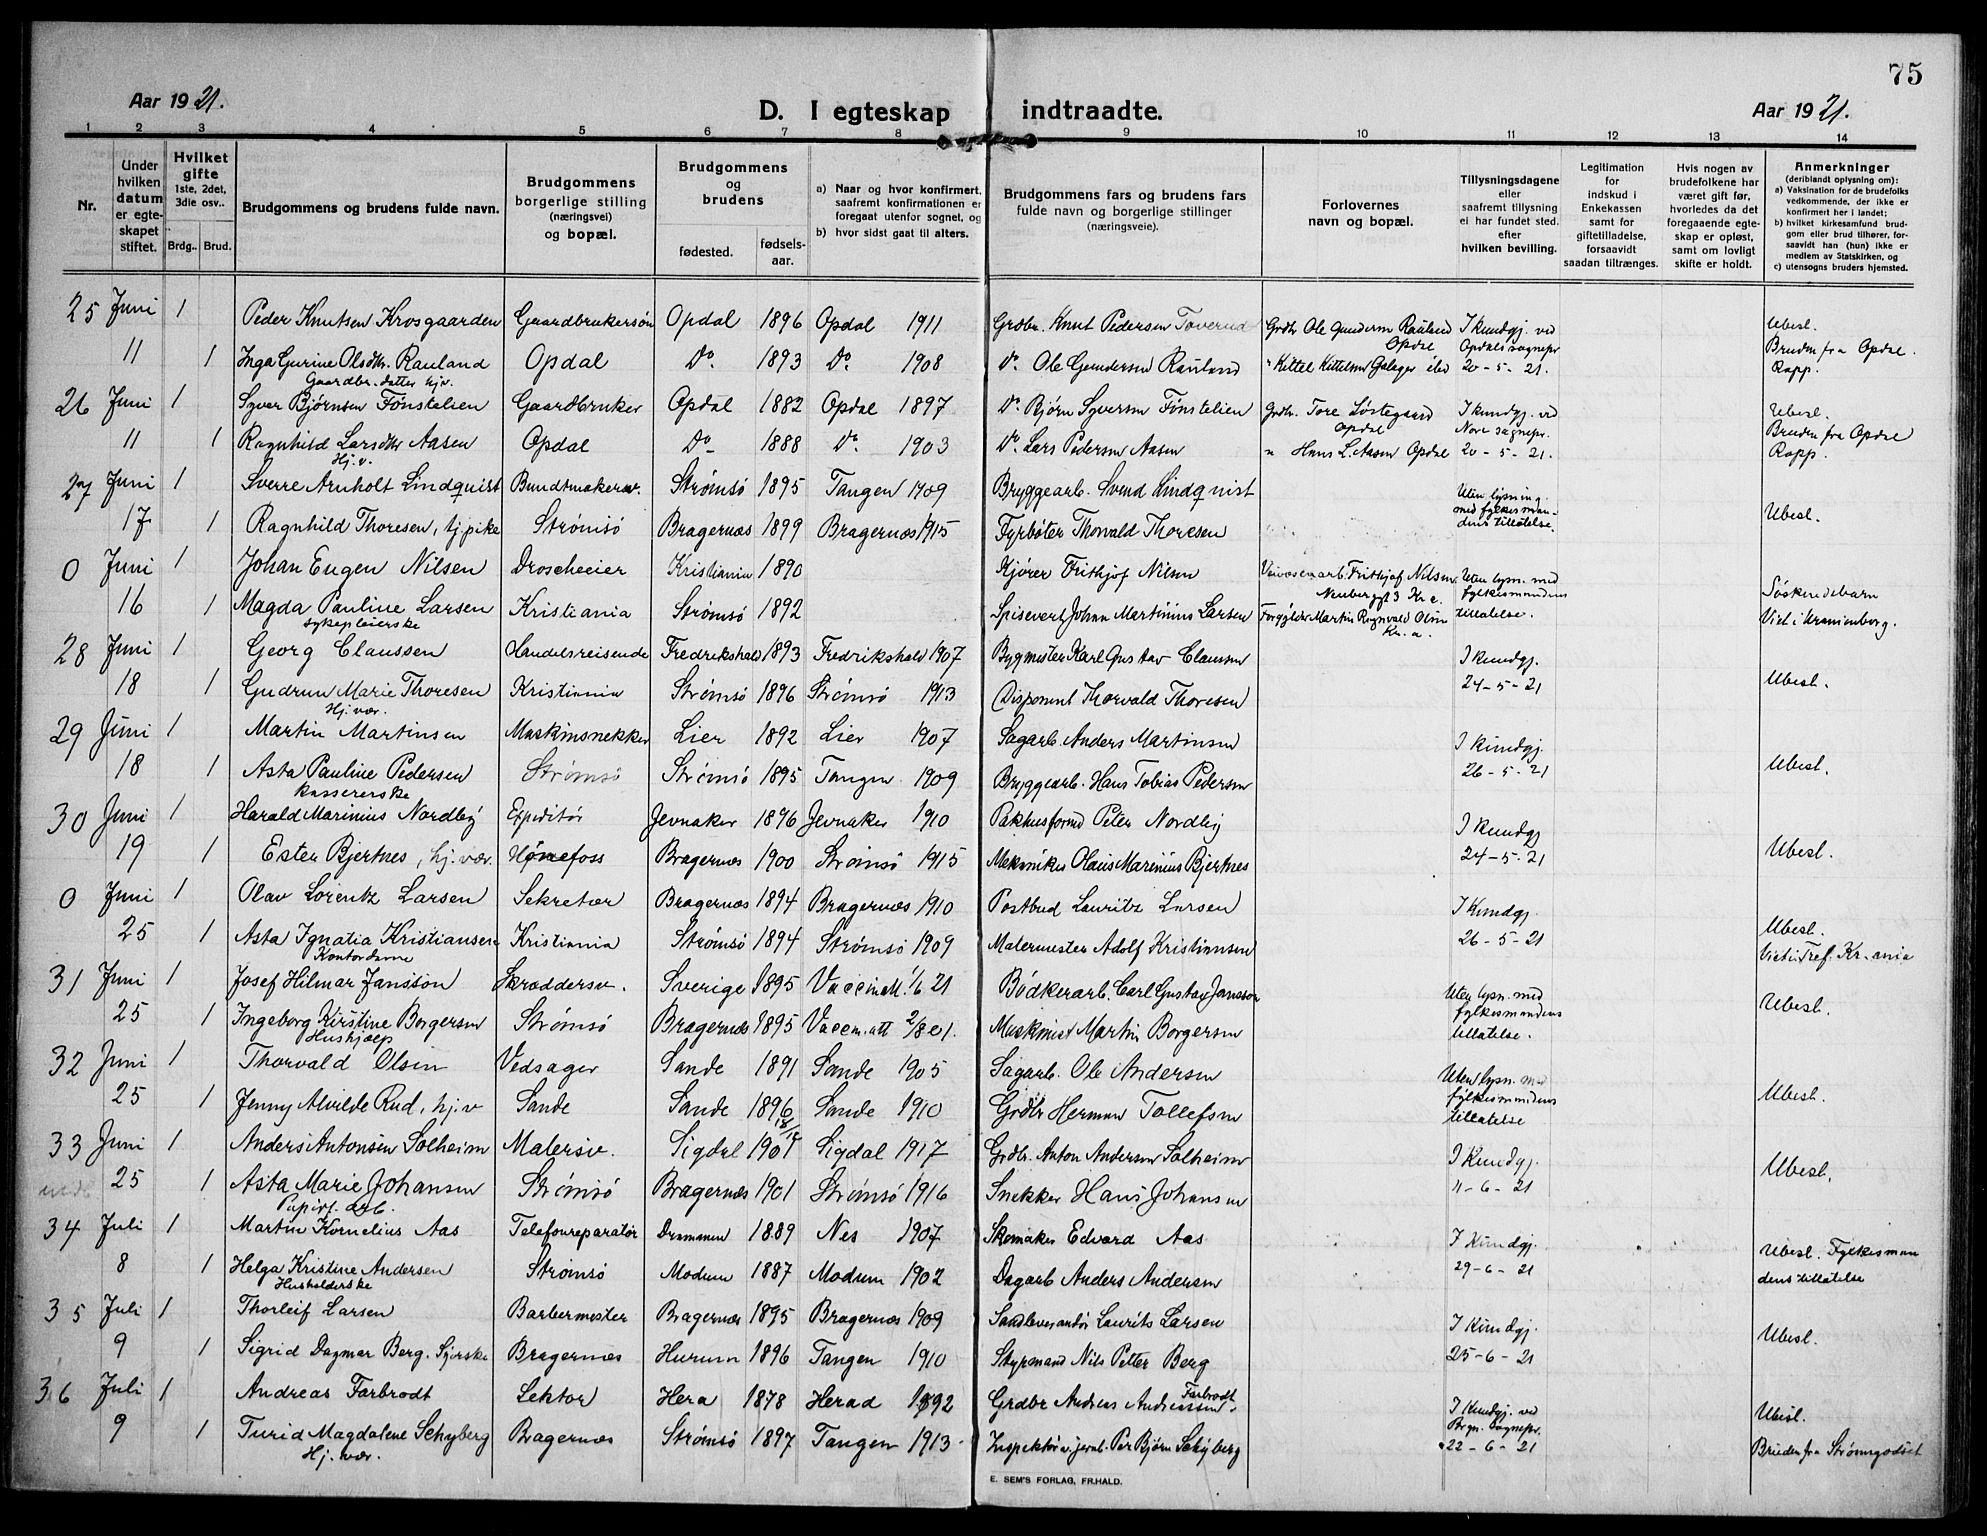 75
Aar 1921.
D. I egteskap indtraadte.
Aar 1921.
1 2 3 4 5 6 7 8 9 10 11 12 13 14
Nr.
Under hvilken datum er egteskapet stiftet.
Hvilket gifte 1ste, 2det, 3die osv..
Brdg.. Brud.
Brudgommens og brudens fulde navn.
Brudgommens borgerlige stilling (næringsvei) og bopæl.
Brudgommens og brudens
fødested. fødselsaar.
a) Naar og hvor konfirmert, saafremt konfirmationen er foregaat utenfor sognet, og
b) hvor sidst gaat til alters.
Brudgommens fars og brudens fars fulde navn og borgerlige stillinger (næringsveie).
Forlovernes navn og bopæl.
Tillysningsdagene eller saafremt tillysning ei har fundet sted. efter hvilken bevilling.
Legitimation for indskud i Enkekassen samt for giftetilladelse, forsaavidt saadan tiltrænges.
Hvis nogen av brudefolkene har været gift før, hvorledes da det foregaaende egteskap er opløst, samt om lovligt skifte er holdt.
Anmerkninger (deriblandt oplysning om):
a) Vaksination for de brudefolks vedkommende, der ikke er konfirmert her i landet;
b) hvilket kirkesamfund brudgom eller brud tilhører, forsaavidt han (hun) ikke er medlem av Statskirken, og
c) utensogns bruders hjemsted.
25 Juni 1 Peder Knutsen Krosgaarden Gaardbrukersøn Opdal 1896 Opdal 1911 Grdbr. Knut Pedersen Toverud Grdbr Ole Gundersen Rauland Opdal I kundgj. ved Opdals sognepr. Ubesl.
11 1 Inga Gurine Olsdtr. Rauland Opdal Do 1893 Do. 1908 Do. Ole Gundersen Rauland " Kittel Kittelsen 20-5-21. Bruden fra Opdal. Rapp.
Gaardbr. datter hj.v.
26 Juni 1 Syver Bjørnsen Fønstelien Gaardbruker Opdal 1882 Opdal 1897 Do. Bjørn Syversen Fønstelien Grdbr. Tore Løstegaard Opdal I kundgj. ved Nore sognepr. Ubesl.
11 1 Ragnhild Larsdtr Aasen Opdal Do 1888 Do. 1903 Do. Lars Pedersen Aasen " Hans L. Aasen Opdal 20-5-21. Bruden fra Opdal Rapp.
Hj.v.
27 Juni 1 Sverre Arnholt Lindquist Bundtmakersv. Strømsø 1895 Tangen 1909 Bryggearb. Svend Lindquist Uten lysning. med fylkesmandens tillatelse.
17 1 Ragnhild Thoresen, tj.pike Strømsø Bragernæs 1899 Bragernæs 1915 Fyrbøter Thorvald Thoresen Ubesl.
0 Juni 1 Johan Eugen Nilsen Droscheeier Kristiania 1890 Kjører Frithjof Nilsen Frithjof Nilsen, Neuberggt 3 Kr.a. Uten lysn. med fylkesmandens tillatelse. Søskendebarn
16 1 Magda Pauline Larsen Kristiania Strømsø 1892 Spisevert Johan Martinius Larsen Forgylder Martin Ragnvald Olsen Kr.a. Viet i Kranienborg.
sykepleierske
28 Juni 1 Georg Claussen Handelsreisende Fredrikshald 1893 Fredrikshald 1907 Bygmester Karl Gustav Claussen I kundgj. 24-5-21
18 1 Gudrun Marie Thoresen Kristiania Strømsø 1896 Strømsø 1913 Disponent Thorvald Thoresen Ubesl.
Hj. vær.
29 Juni 1 Martin Martinsen Maskinsnekker Lier 1892 Lier 1907 Sagarb. Anders Martinsen I kundgj. 26-5-21
18 1 Asta Pauline Pedersen Strømsø Strømsø 1895 Tangen 1909 Bryggearb. Hans Tobias Pedersen Ubesl.
kassererske
30 Juni 1 Harald Marinius Nordby Expeditør Jevnaker 1896 Jevnaker 1910 Pakhusformd Peter Nordby I kundgj 24-5-21
19 1 Ester Bjertnes, hj.vær. Hønefoss Bragernæs 1900 Strømsø 1915 Mekaniker Olaus Marinius Bjertnes Ubesl.
0 Juni 1 Olav Lorentz Larsen Sekretær Bragernæs 1894 Bragernæs 1910 Postbud Lauritz Larsen I Kundgj. 26-5-21
25 1 Asta Ignatia Kristiansen Kristiania Strømsø 1894 Strømsø 1909 Malermester Adolf Kristiansen Ubesl. Viet i Tref. Kr.ania
Kontordame
31 Juni 1 Josef Hilmar Jansson Skræddersv. Sverige 1895 Vaccinatt. 1/6 21 Bødkerarb. Carl Gustav Jansson Uten lysn. med fylkesmandens tillatelse.
25 1 Ingeborg Kirstine Borgersen Strømsø Bragernæs 1895 Vaccin.att 2/8 21. Maskinist Martin Borgersen Ubesl.
Hushjælp
32 Juni 1 Thorvald Olsen Vedsager Sande 1891 Sande 1905 Sagarb. Ole Andersen Uten lysn. med fylkesmandens tillatelse
25 1 Jenny Alvilde Rud, hj.v Sande Sande 1896 Sande 1910 Grdbr Herman Tollefsen Ubesl.
33 Juni 1 Anders Antonsen Solheim Malersv. Sigdal 1901 Sigdal 1917 Grdbr. Anton Andersen Solheim I Kundgj. 11-6-21
25 1 Asta Marie Johansen Strømsø Bragernæs 1901 Strømsø 1916 Snekker Hans Johansen Ubesl.
Papirf. arb.
34 Juli 1 Martin Kornelius Aas Telefonreparatør Drammen 1889 Nes 1907 Skomaker Edvard Aas I Kundgj. 29-6-21
8 1 Helga Kristine Andersen Strømsø Modum 1887 Modum 1902 Dagarb Anders Andersen Ubesl. Fylkesmandens tillatelse
Husholderske
35 Juli 1 Thorleif Larsen Barbermester Bragernæs 1895 Bragernæs 1909 Sandleverandør Laurits Larsen I Kundgj. 25-6-21
9 1 Sigrid Dagmar Berg. Syerske Bragernæs Hurum 1896 Tangen 1910 Styrmand Nils Petter Berg Ubesl.
36 Juli 1 Andreas Farbrodt Lektor Hera 1878 Herad 1892 Grdbr Andreas Andreassen Farbrodt. I Kundgj. ved Brgn. Sognepr. 22-6-21 Ubesl.
9 1 Turid Magdalene Schyberg Bragernæs Strømsø 1897 Tangen 1913 Inspektør v. jernb. Per Bjørn Schyberg Bruden fra Strømsgodset
Hj. vær.
E. SEM'S FORLAG, FR.HALD.